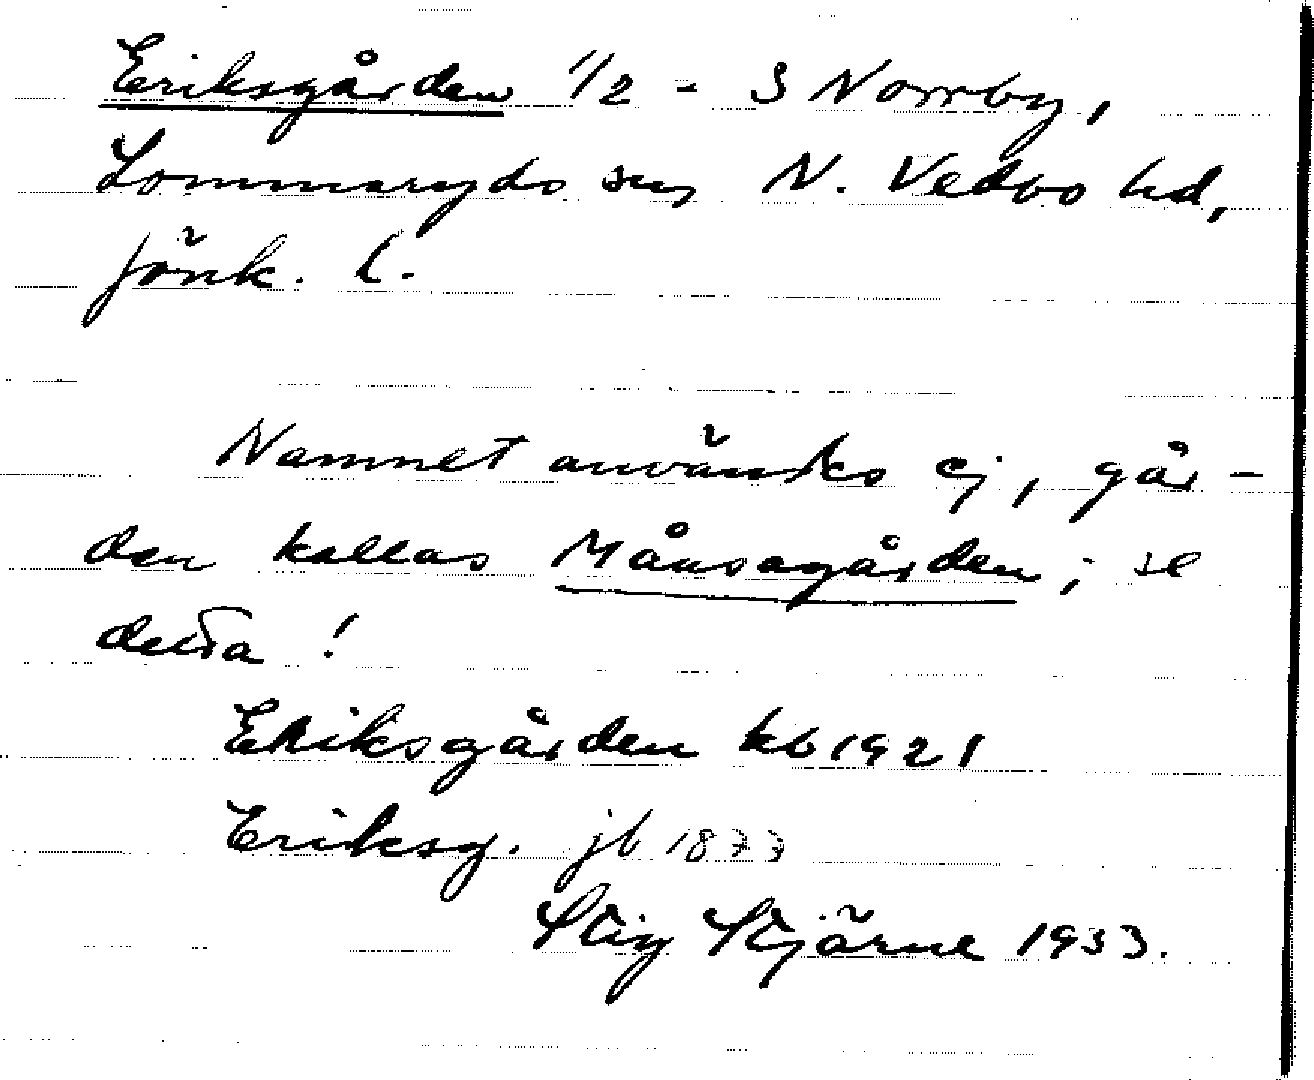 Eriksgården 1/2 - S Norrby,
Lommaryds sn, N. Vedbo hd,
Jönk. l.
Namnet användes ej, går-
den kallas Månsagården; se
detta!
Eriksgården kb 1921
Eriksg. jb 1877
Stig Stjärne 1933.